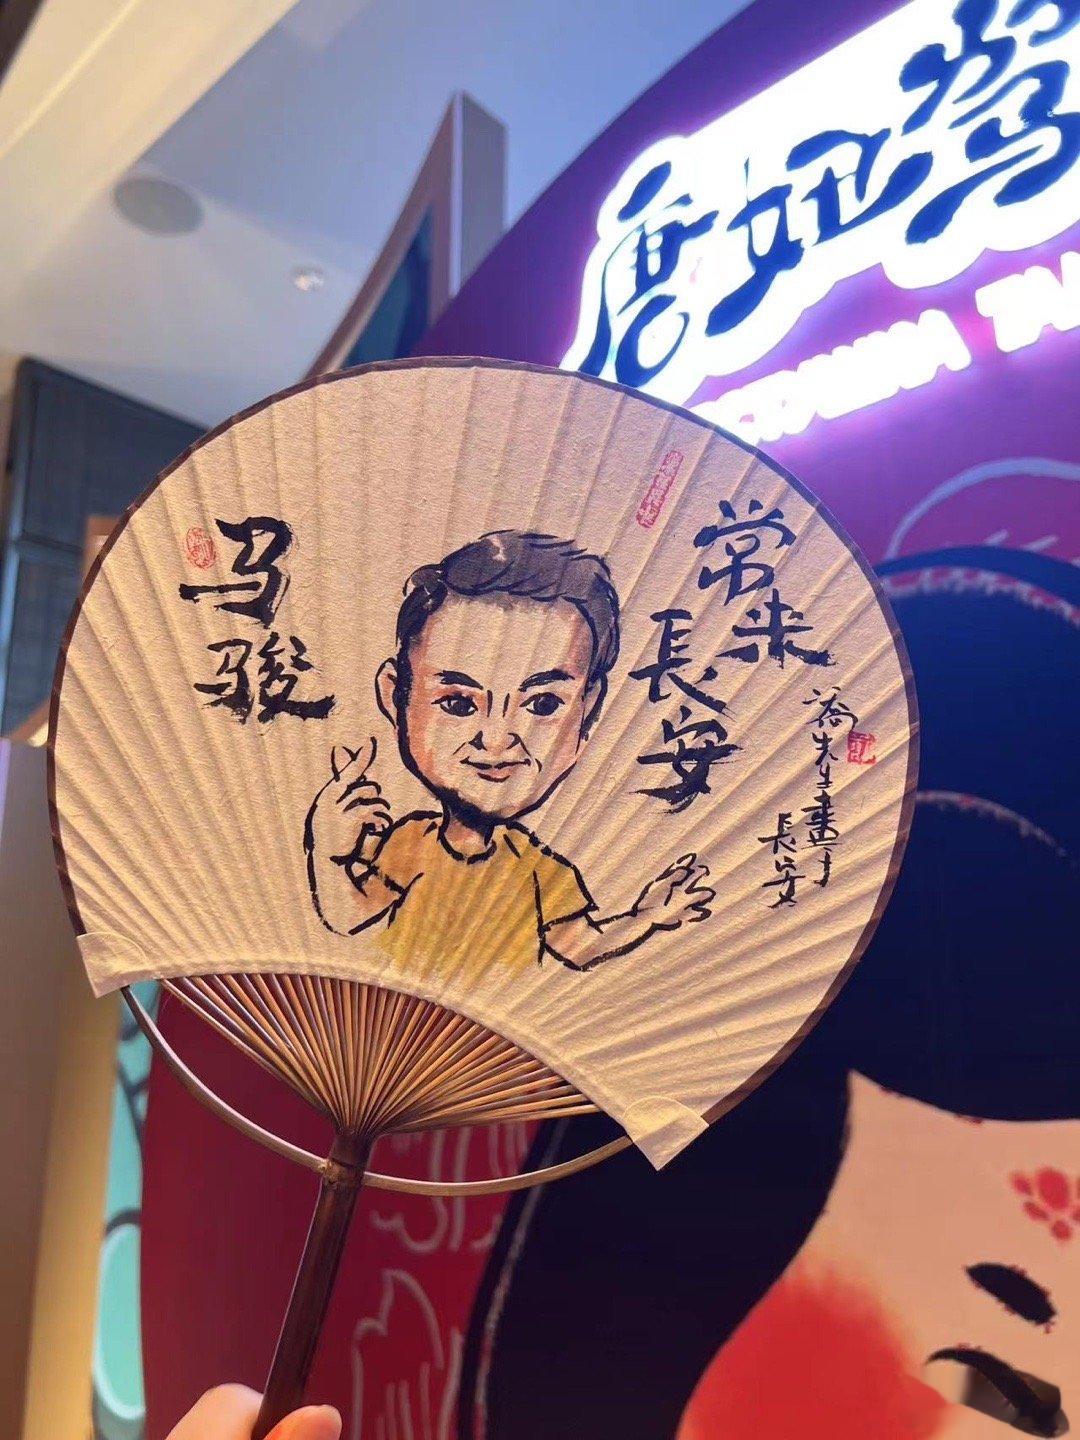 唐妞驾
马骏
常来
長安
喬先生畫于
長安